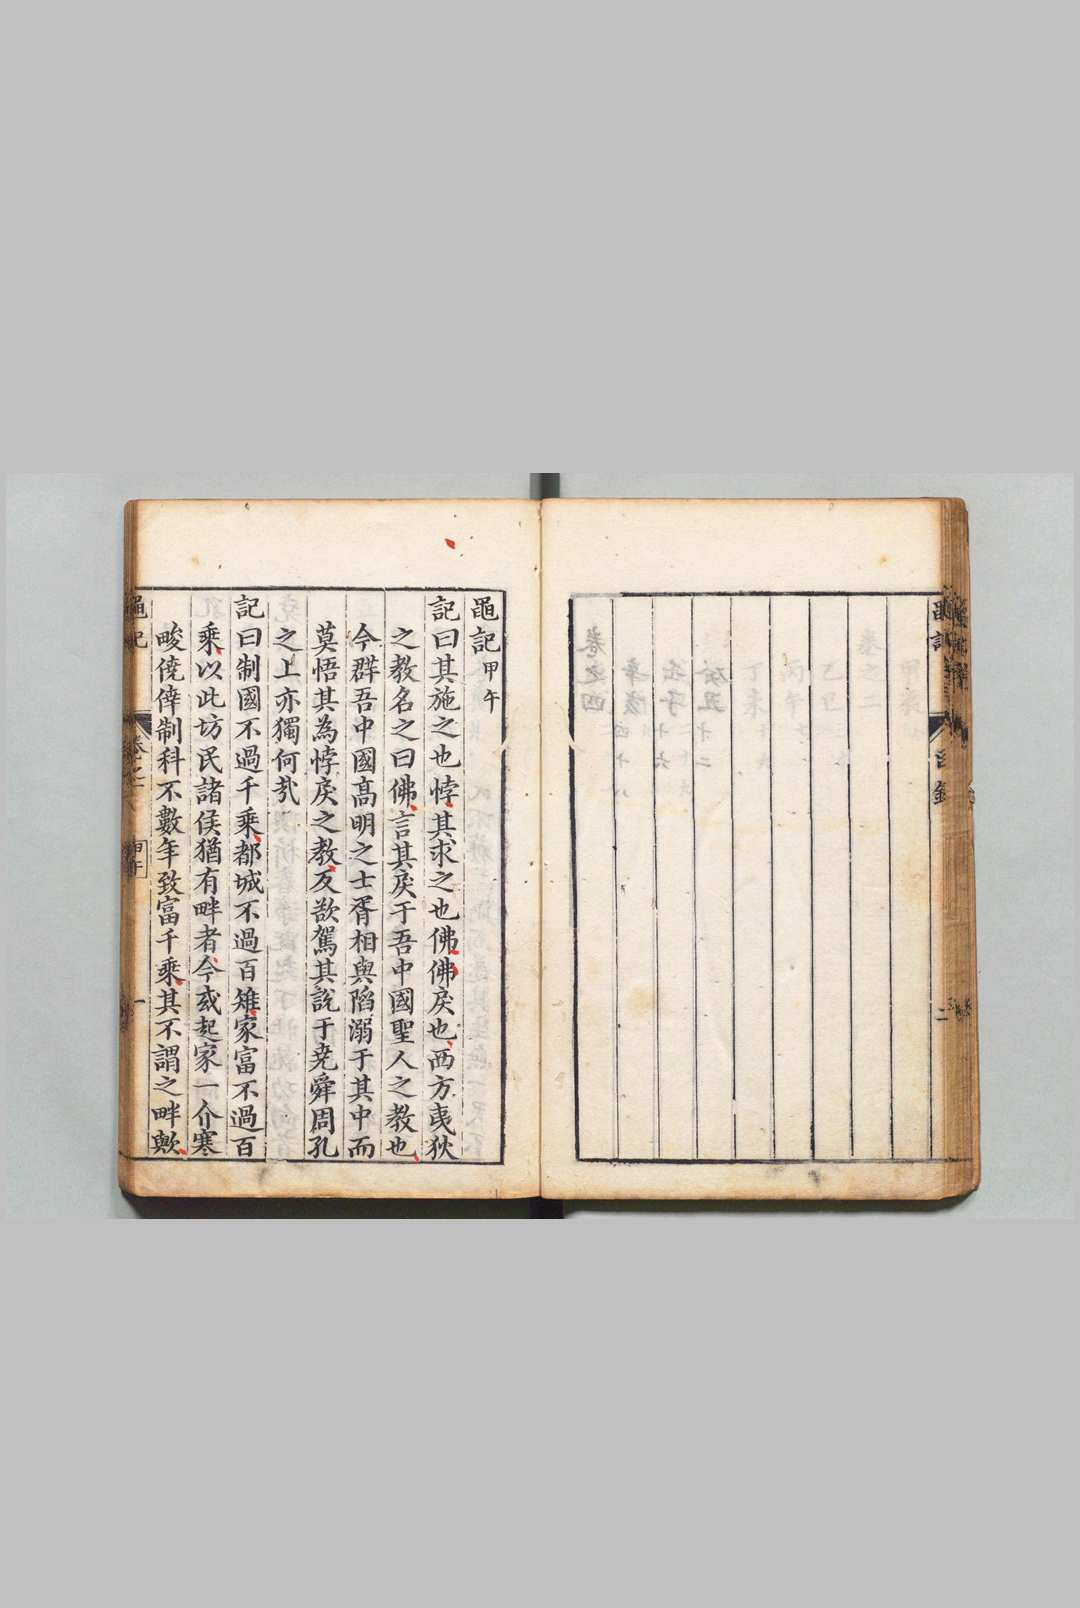 黽記 目錄 二
黽記甲午
記曰其施之也悖其求之也佛佛戾也西方夷狄
之教名之曰佛言其戾于吾中國聖人之教也
今群吾中國高明之士胥相與陷溺于其中而
莫悟其為悖戾之教反欲駕其說于堯舜周孔
之上亦獨何㢤
記曰制國不過千乘都城不過百雉家富不過百
乘以此坊民諸侯猶有畔者今或起家一介寒
畯僥倖制科不數年致富千乘其不謂之畔歟
黽記 卷之一 甲午 一